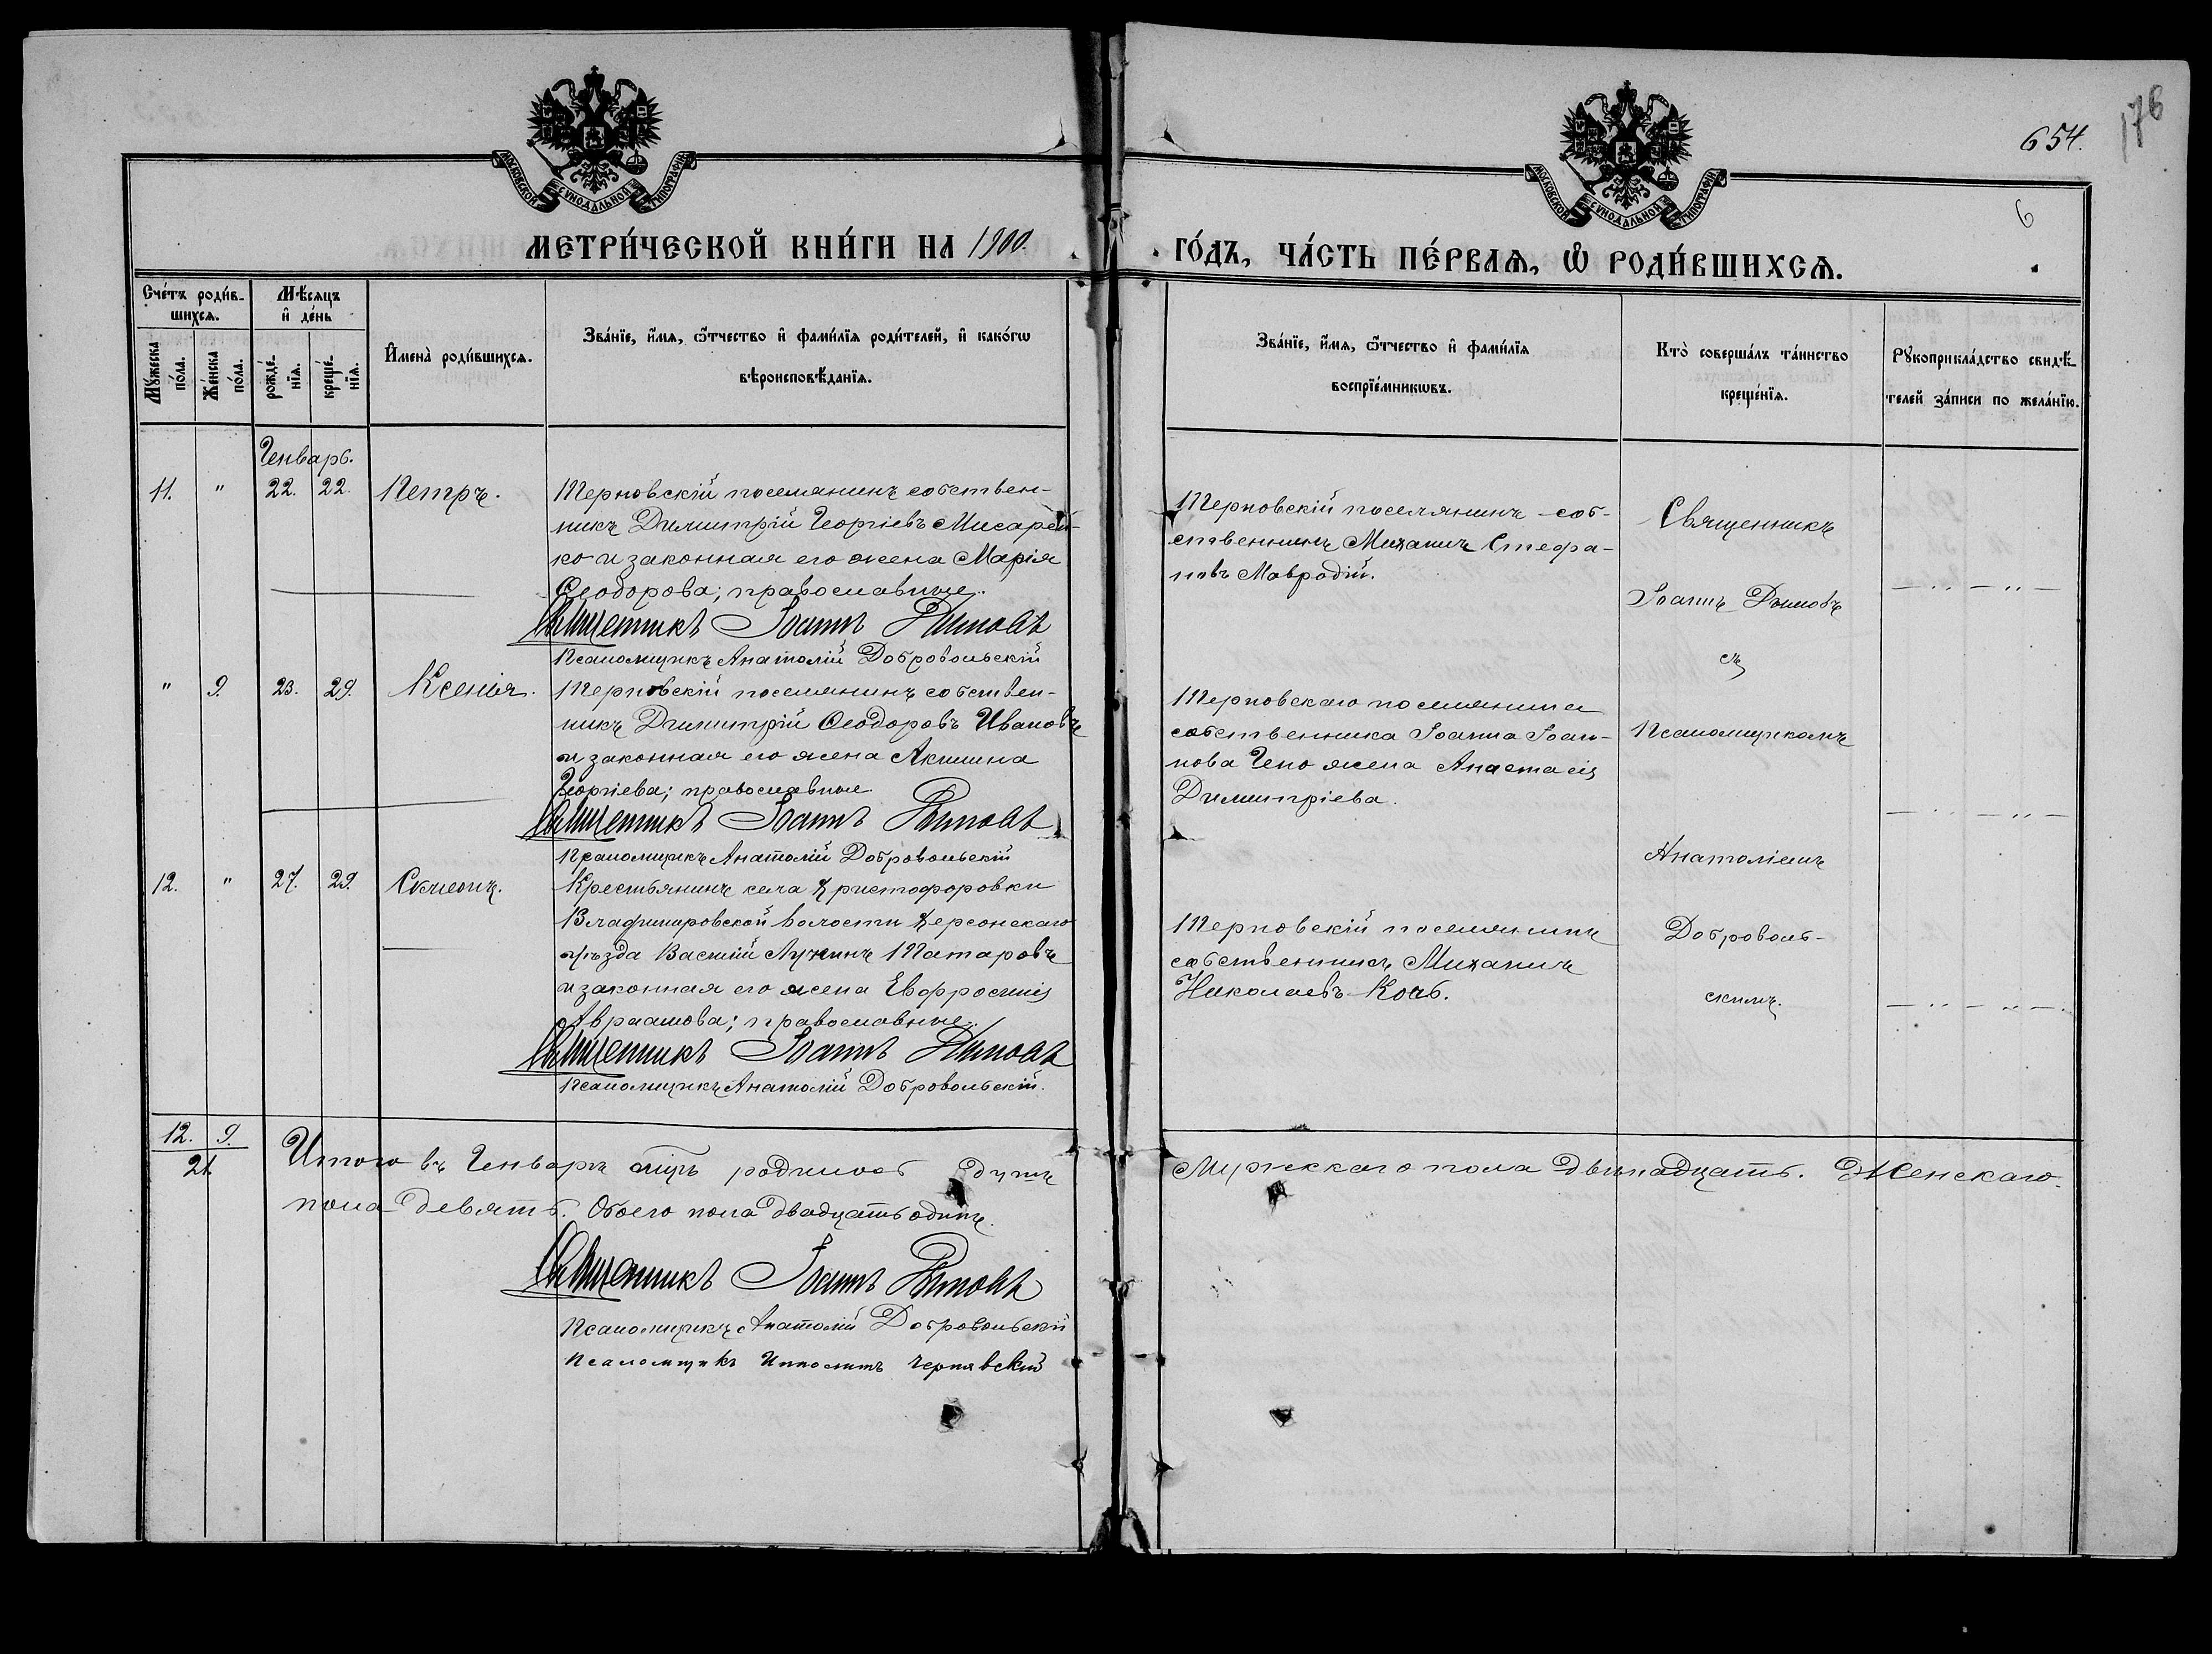 176
654.
6
МОСКОВСКОЙ СѴНОДАЛЬНОЙ ТИПОГРАФІИ
МОСКОВСКОЙ СѴНОДАЛЬНОЙ ТИПОГРАФІИ
МЕТРИ́ЧЕСКОЙ КНИ́ГИ НА 1900.
ГО́ДЪ, ЧА́СТЬ ПЕ́РВАѦ, Ѡ҆ РОДИ́ВШИХСѦ.
Счéтъ роди́в-
шихсѧ.
Мꙋ́жеска по́ла.
Же́нска по́ла.
Мѣ́сѧцъ
и҆ де́нь
рожде́-
нїѧ.
креще́-
нїѧ.
И҆мена̀ роди́вшихсѧ.
Зва́нїе, и҆́мѧ, ѻ҆́тчество и҆ фами́лїѧ роди́телей, и҆ како́гѡ
вѣроисповѣ́данїѧ.
Зва́нїе, и҆́мѧ, ѻ҆́тчество и҆ фами́лїѧ
воспрїе́мникѡвъ.
Кто̀ соверша́лъ та́инство
креще́нїѧ.
Рꙋкоприкла́дство свидѣ́-
телей за́писи по жела́нїю.
Генварь.
11. " 22. 22. Петръ.
Терновскій поселянинъ собствен-
никъ Димитрій Георгіевъ Писарен-
ко и законная его жена Марія
Ѳеодорова; православные.
Священникъ Іоаннъ Дымовъ
Псаломщикъ Анатолій Добровольскій
Терновскій поселянинъ соб-
ственникъ Михаилъ Стефа-
новъ Мавродій.
" 9. 23. 29. Ксенія.
Терновскій поселянинъ собствен-
никъ Димитрій Ѳеодоровъ Ивановъ
и законная его жена Акилина
Георгіева; православные
Священникъ Іоаннъ Дымовъ
Псаломщикъ Анатолій Добровольскій
Терновскаго поселянина
собственника Іоанна Іоан-
нова жена Анастасія
Димитріева.
12. " 27. 29. Симеонъ.
Крестьянинъ села Христофоровки
Владимировской волости Херсонскаго
уѣзда Василій Лукинъ Татаровъ
и законная его жена Евфросинія
Авраамова; православные.
Священникъ Іоаннъ Дымовъ
Псаломщикъ Анатолій Добровольскій.
Терновскій поселянинъ
собственникъ Михаилъ
Николаевъ
Священникъ
Іоаннъ Дымовъ
съ
Псаломщикомъ
Анатоліемъ
Доброволь-
скимъ.
12. 9.
21.
Итого въ Генварѣ мцѣ родилось душъ
Мужескаго пола двѣнадцать. Женскаго
пола девять. Обоего пола двадцать одинъ.
Священникъ Іоаннъ Дымовъ
Псаломщикъ Анатолій Добровольскій
Псаломщикъ Ипполитъ Чернявскій